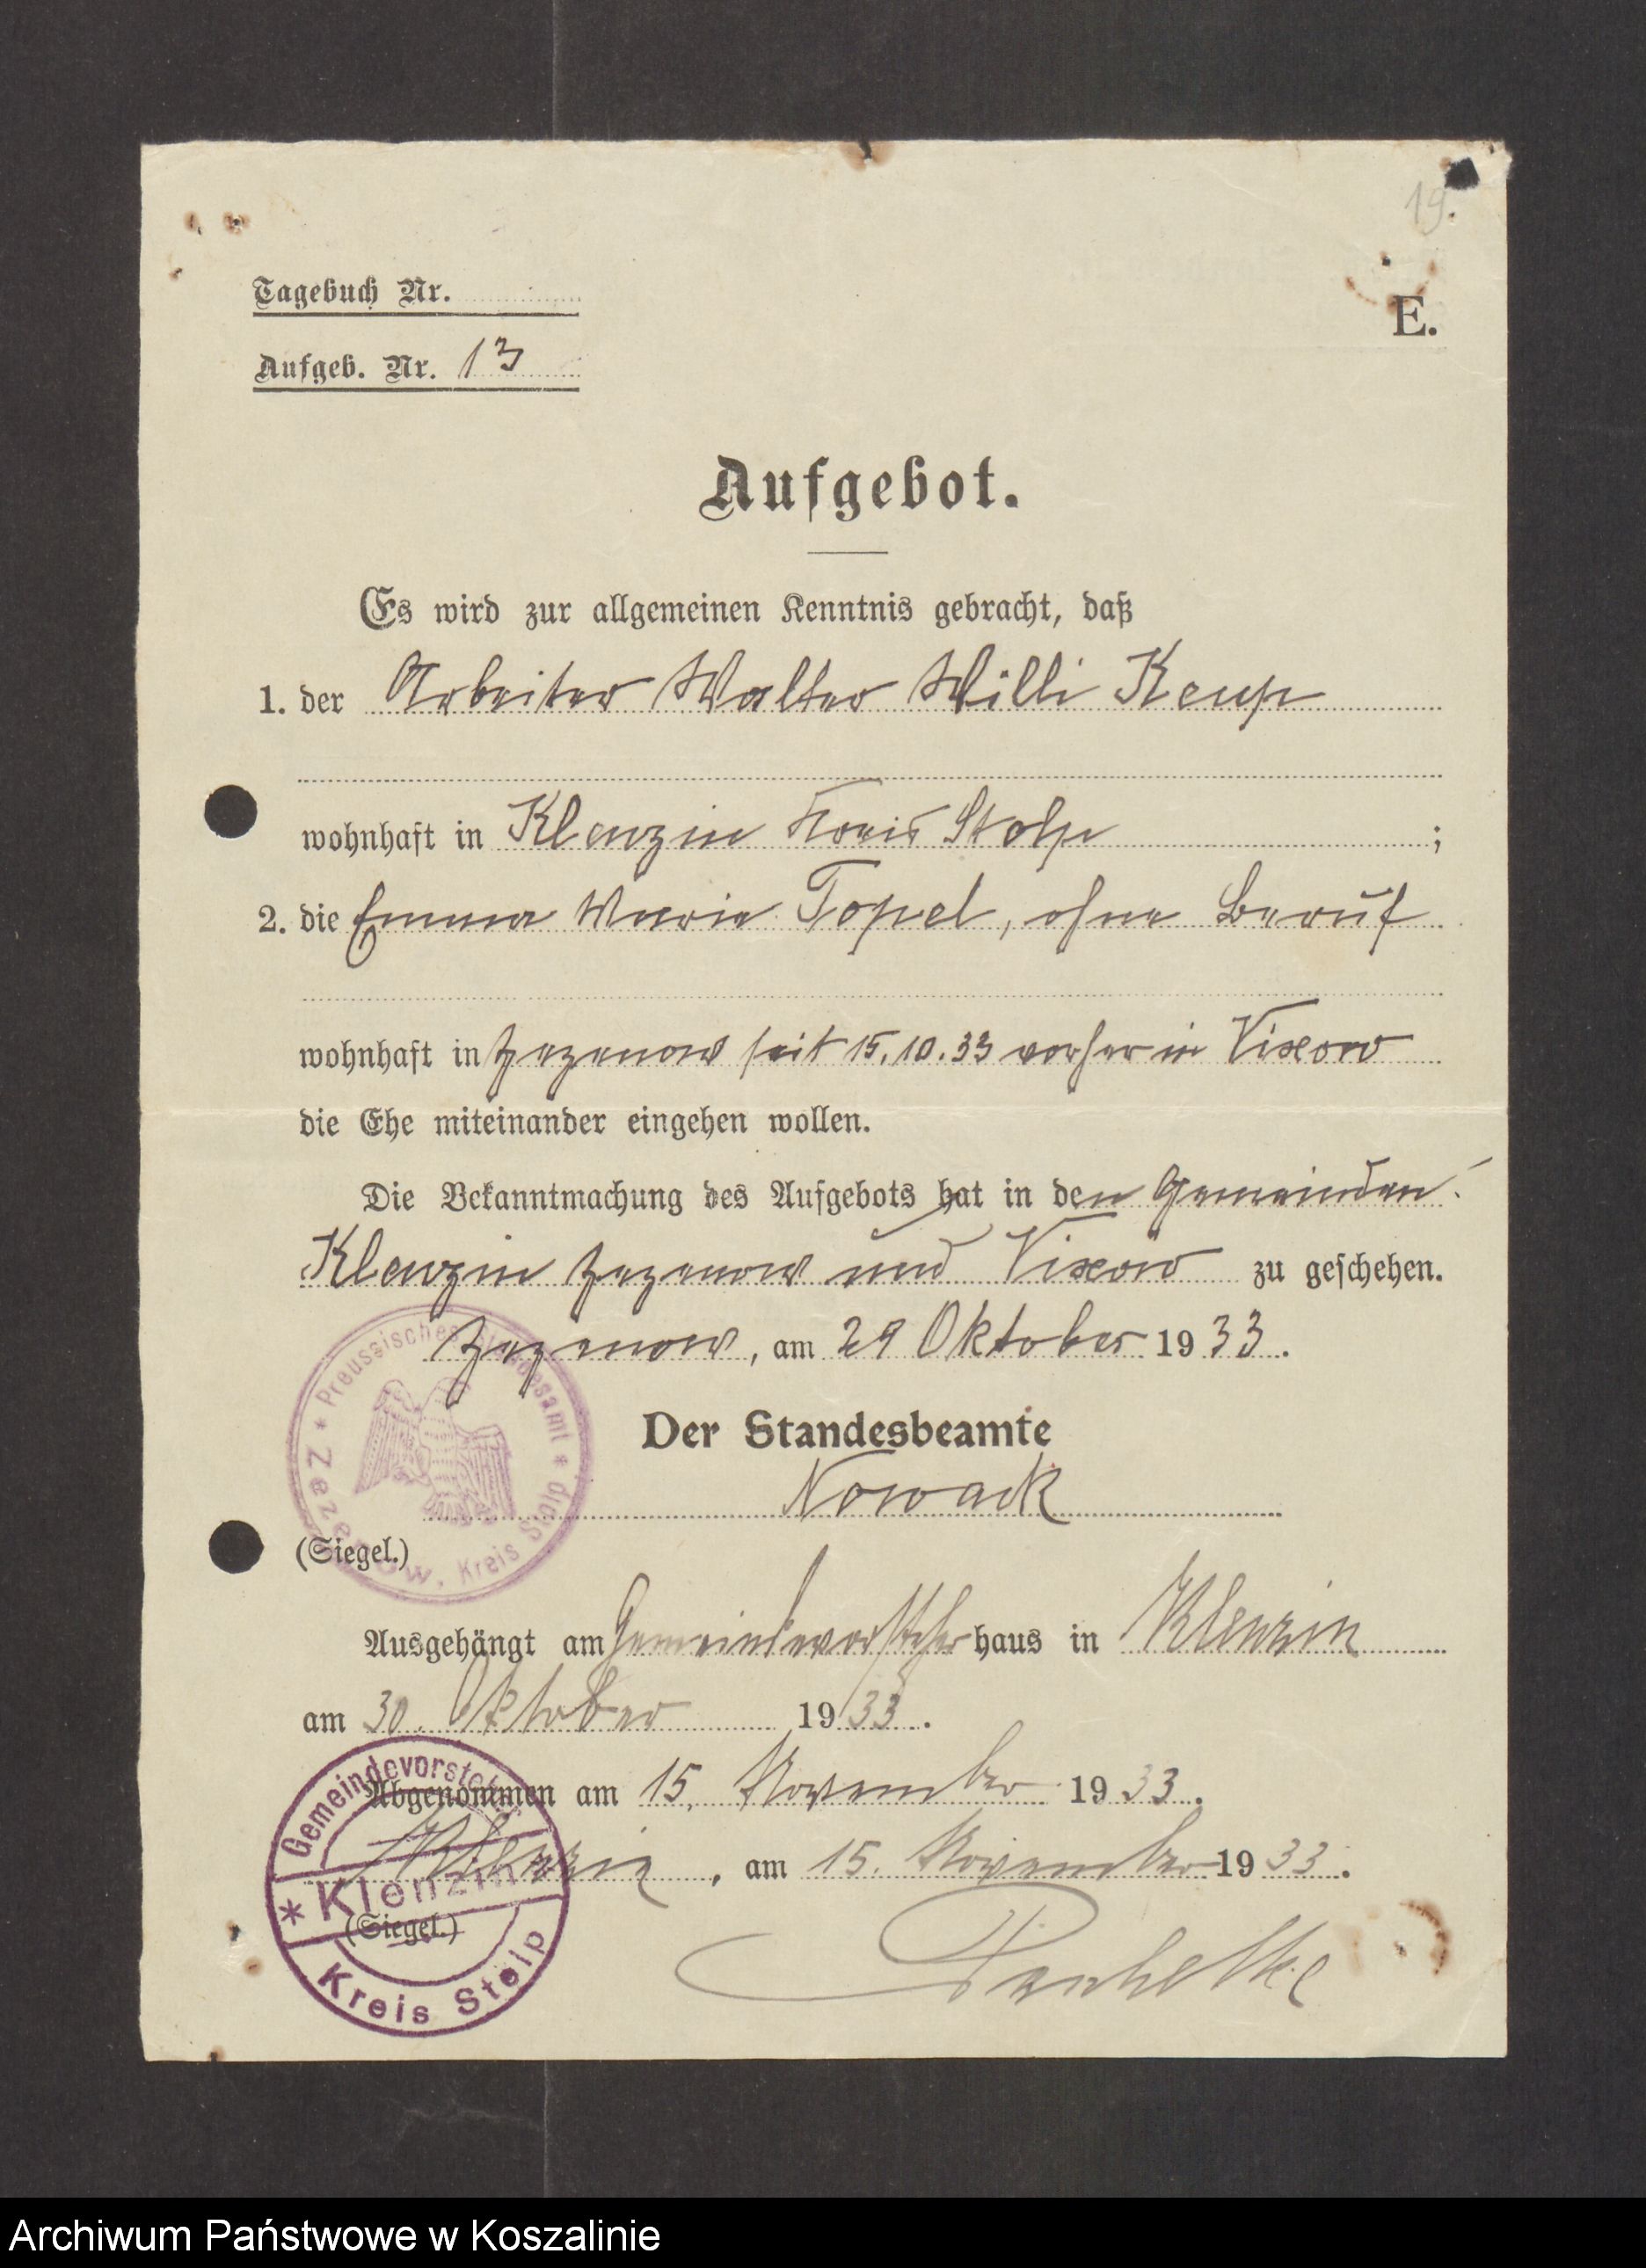 19.
Tagebuch Nr.
E.
Aufgeb. Nr. 13
Aufgebot.
Es wird zur allgemeinen Kenntnis gebracht, daß
1. der Arbeiter Walter Willi Keup
wohnhaft in Klenzin Kreis Stolp ;
2. die Emma Marie Topel, ohne Beruf
wohnhaft in Zezenow seit 15.10.33 vorher in Vixow
die Ehe miteinander eingehen wollen.
Die Bekanntmachung des Aufgebots hat in den Gemeinden
Klenzin Zezenow und Vixow zu geschehen.
Zezenow, am 29 Oktober 1933.
Preussisches Standesamt * Zezenow, Kreis Stolp *
Der Standesbeamte
Nowack
(Siegel.)
Ausgehängt am Gemeindevorsteherhaus in Klenzin
am 30. Oktober 1933.
Abgenommen am 15. November 1933.
Klenzin, am 15. November 1933.
Gemeindevorsteher
* Klenzin *
Kreis Stolp
(Siegel.)
Archiwum Państwowe w Koszalinie